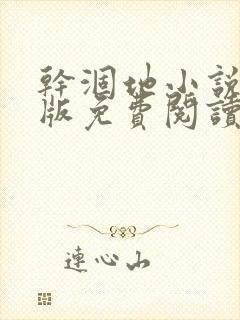 幹涸地小說
版免費閱讀
連心山